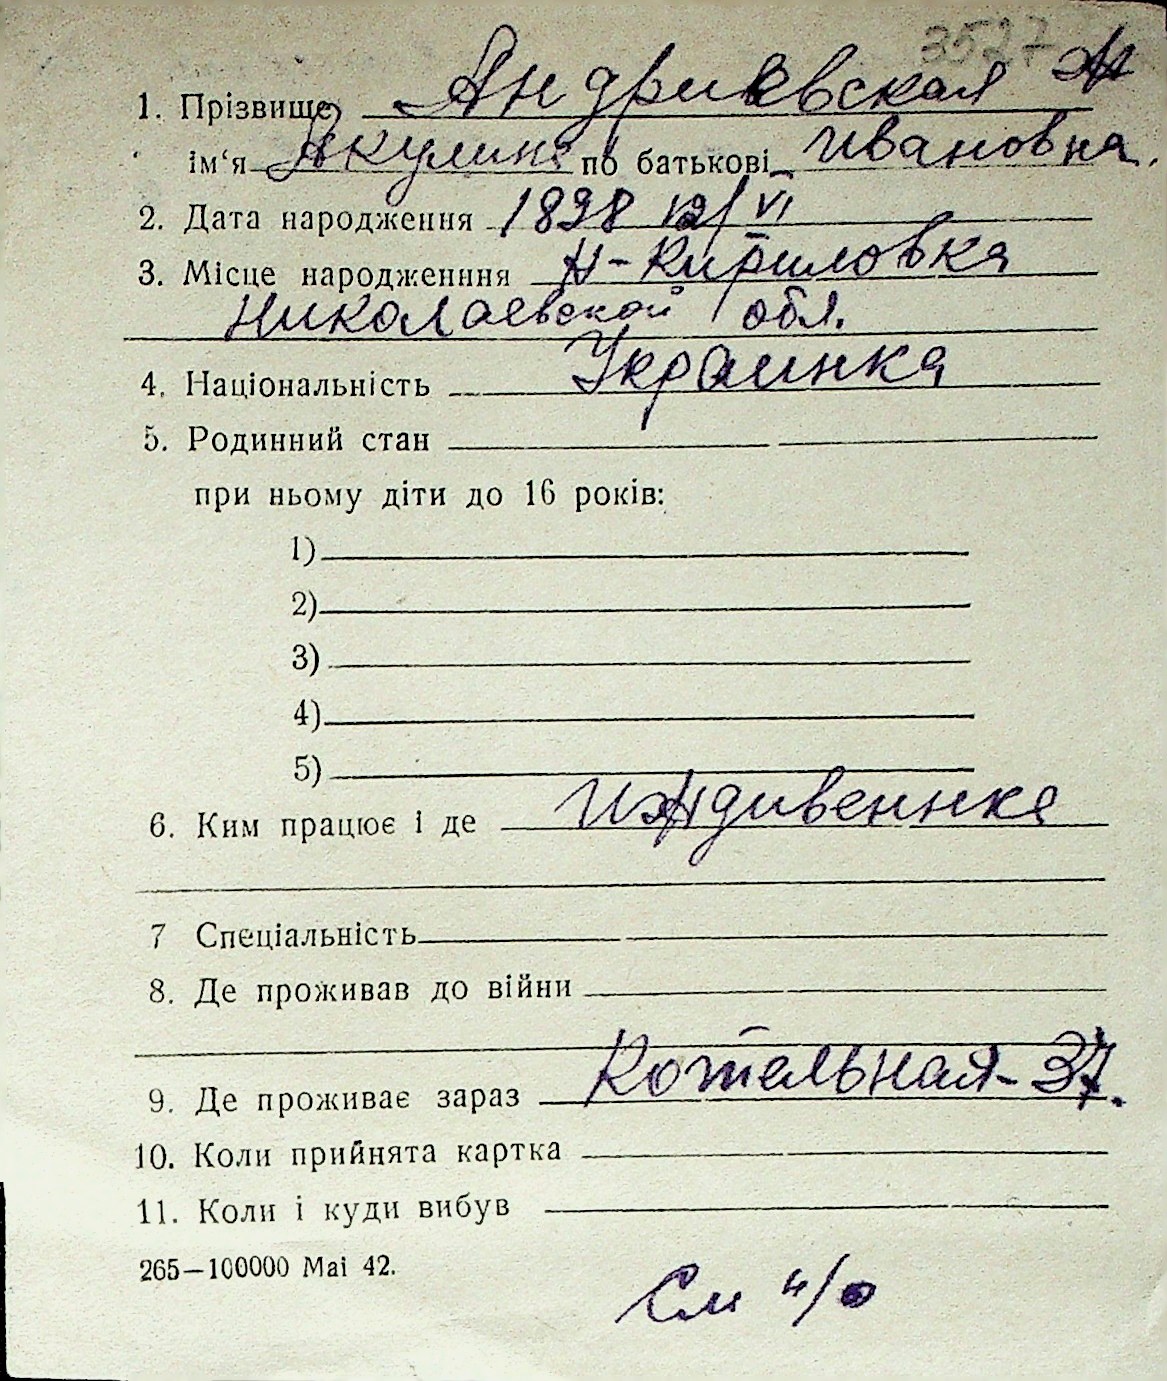 3527
1. Прізвище Андриевская Ж
ім‘я Акулина по батькові Ивановна.
2. Дата народження 1898 12/VI
3. Місце народженння Н-Кириловка
Николаевской обл.
4. Національність Украинка
5. Родинний стан
при ньому діти до 16 років:
1)
2)
3)
4)
5)
6. Ким працює і де Иждивенка
7 Спеціальність
8. Де проживав до війни
9. Де проживає зараз Котельная-37.
10. Коли прийнята картка
11. Коли і куди вибув
265—100000 Mai 42.
См